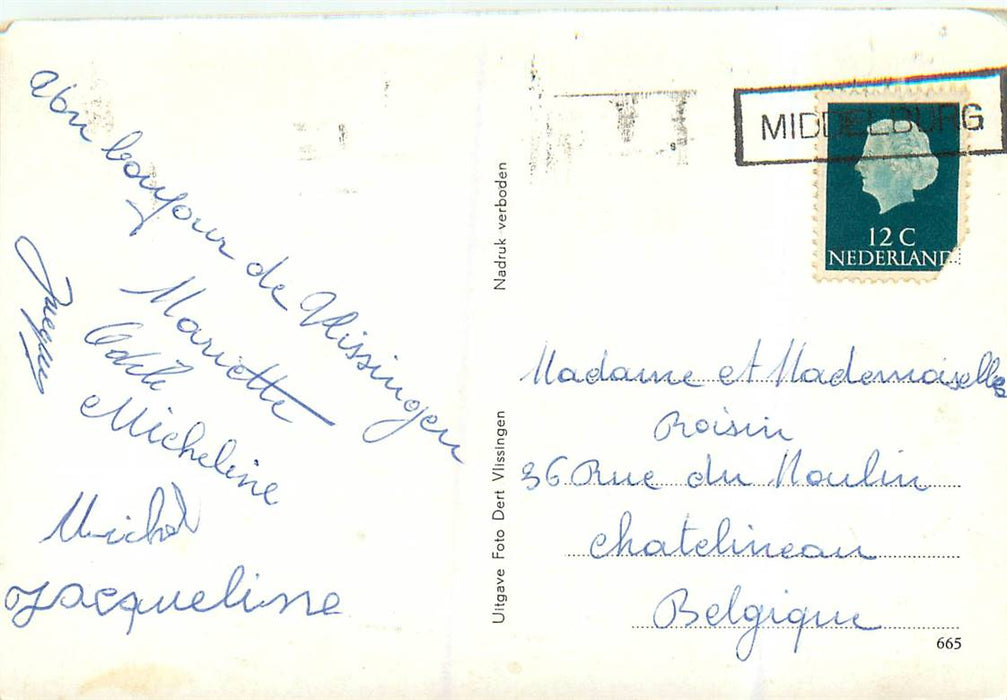 abn bonjour de Vlissingen
Mariette
Odile
Micheline
Michel
Jacqueline
Nadruk verboden
Uitgave Foto Dert Vlissingen
MIDDELBURG
12 C
NEDERLAND
Madame et Mademoiselle
Roisin
36 Rue du Moulin
chatelineau
Belgique
665